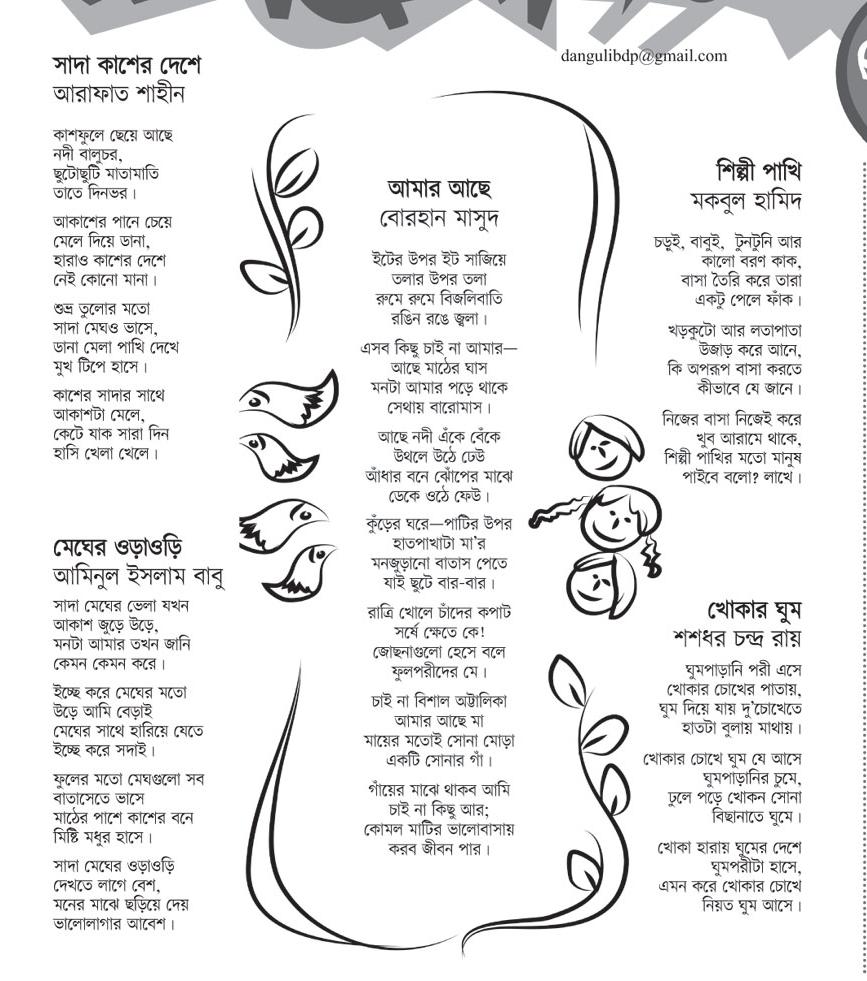 dangulibdp@gmail.com
সাদা কাশের দেশে
আরাফাত শাহীন
কাশফুলে ছেয়ে আছে
নদী বালুচর,
ছুটোছুটি মাতামাতি
তাতে দিনভর।
আকাশের পানে চেয়ে
মেলে দিয়ে ডানা,
হারাও কাশের দেশে
নেই কোনো মানা।
শুভ্র তুলোর মতো
সাদা মেঘও ভাসে,
ডানা মেলা পাখি দেখে
মুখ টিপে হাসে।
কাশের সাদার সাথে
আকাশটা মেলে,
কেটে যাক সারা দিন
হাসি খেলা খেলে।
মেঘের ওড়াওড়ি
আমিনুল ইসলাম বাবু
সাদা মেঘের ভেলা যখন
আকাশ জুড়ে উড়ে,
মনটা আমার তখন জানি
কেমন কেমন করে।
ইচ্ছে করে মেঘের মতো
উড়ে আমি বেড়াই
মেঘের সাথে হারিয়ে যেতে
ইচ্ছে করে সদাই।
ফুলের মতো মেঘগুলো সব
বাতাসেতে ভাসে
মাঠের পাশে কাশের বনে
মিষ্টি মধুর হাসে।
সাদা মেঘের ওড়াওড়ি
দেখতে লাগে বেশ,
মনের মাঝে ছড়িয়ে দেয়
ভালোলাগার আবেশ।
আমার আছে
বোরহান মাসুদ
ইটের উপর ইট সাজিয়ে
তলার উপর তলা
রুমে রুমে বিজলিবাতি
রঙিন রঙে জ্বলা।
এসব কিছু চাই না আমার—
আছে মাঠের ঘাস
মনটা আমার পড়ে থাকে
সেথায় বারোমাস।
আছে নদী এঁকে বেঁকে
উথলে উঠে ঢেউ
আঁধার বনে ঝোঁপের মাঝে
ডেকে ওঠে ফেউ।
কুঁড়ের ঘরে—পাটির উপর
হাতপাখাটা মা'র
মনজুড়ানো বাতাস পেতে
যাই ছুটে বার-বার।
রাত্রি খোলে চাঁদের কপাট
সর্ষে ক্ষেতে কে!
জোছনাগুলো হেসে বলে
ফুলপরীদের মে।
চাই না বিশাল অট্টালিকা
আমার আছে মা
মায়ের মতোই সোনা মোড়া
একটি সোনার গাঁ।
গাঁয়ের মাঝে থাকব আমি
চাই না কিছু আর;
কোমল মাটির ভালোবাসায়
করব জীবন পার।
শিল্পী পাখি
মকবুল হামিদ
চড়ুই, বাবুই, টুনটুনি আর
কালো বরণ কাক,
বাসা তৈরি করে তারা
একটু পেলে ফাঁক।
খড়কুটো আর লতাপাতা
উজাড় করে আনে,
কি অপরূপ বাসা করতে
কীভাবে যে জানে।
নিজের বাসা নিজেই করে
খুব আরামে থাকে,
শিল্পী পাখির মতো মানুষ
পাইবে বলো? লাখে।
খোকার ঘুম
শশধর চন্দ্র রায়
ঘুমপাড়ানি পরী এসে
খোকার চোখের পাতায়,
ঘুম দিয়ে যায় দু'চোখেতে
হাতটা বুলায় মাথায়।
খোকার চোখে ঘুম যে আসে
ঘুমপাড়ানির চুমে,
ঢুলে পড়ে খোকন সোনা
বিছানাতে ঘুমে।
খোকা হারায় ঘুমের দেশে
ঘুমপরীটা হাসে,
এমন করে খোকার চোখে
নিয়ত ঘুম আসে।